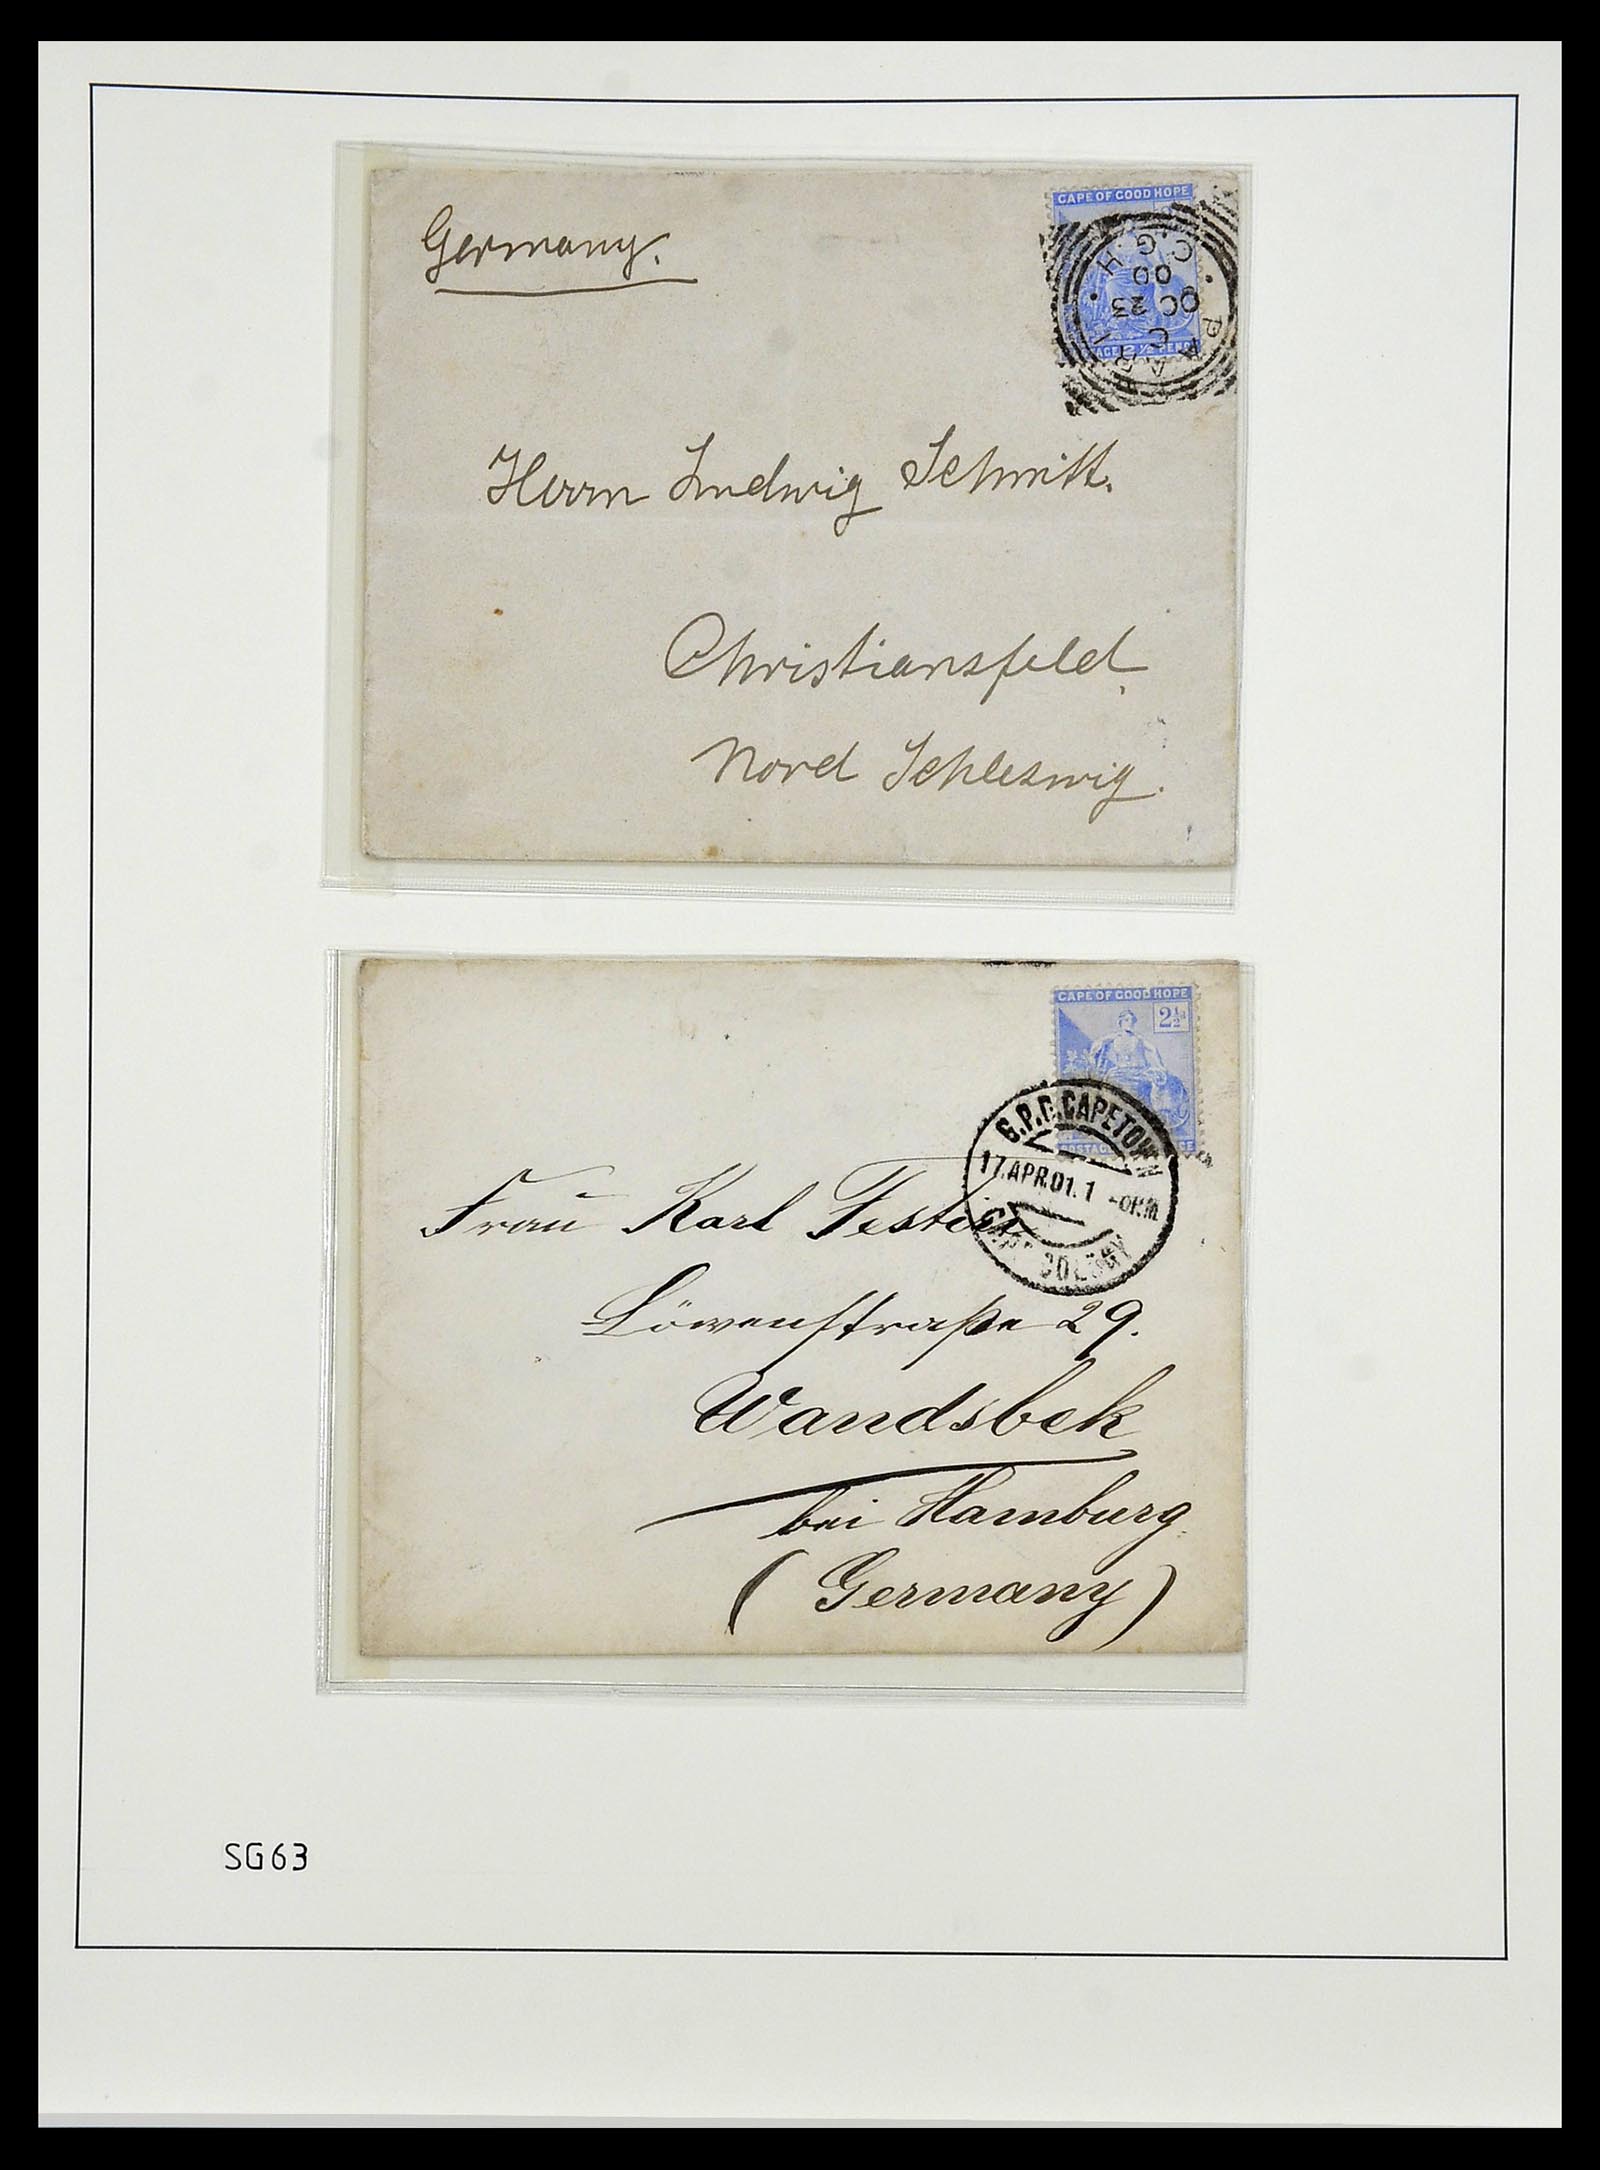 Germany.
CAPE OF GOOD HOPE
C.G.H.
00
OC 23
C
PAARL
2½ PENCE
Herrn Ludwig Schmitt.
Christiansfeld,
Nord Schleswig.
CAPE OF GOOD HOPE
2½d
POSTAGE
G.P.O. CAPETOWN
17.APR.01.1
CAPE COLONY
Frau Karl
Löwenstraße 29.
Wandsbek
bei Hamburg
(Germany)
SG63